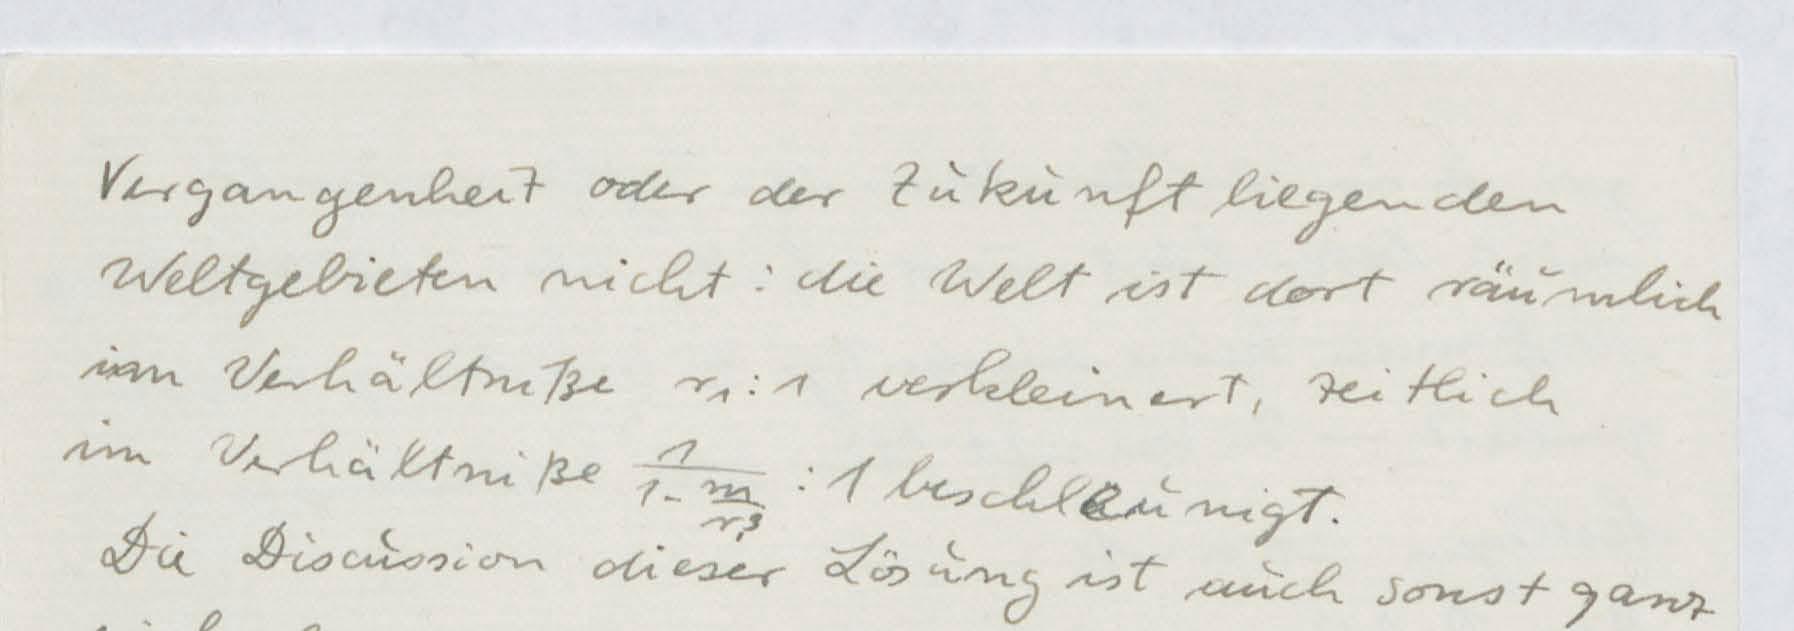 Vergangenheit oder der Zukunft liegenden
Weltgebieten nicht: die Welt ist dort räumlich
im Verhältniße r₁:1 verkleinert, zeitlich
im Verhältniße 1/(1-m/r₁³) : 1 beschleunigt.
Die Discussion dieser Lösung ist auch sonst ganz